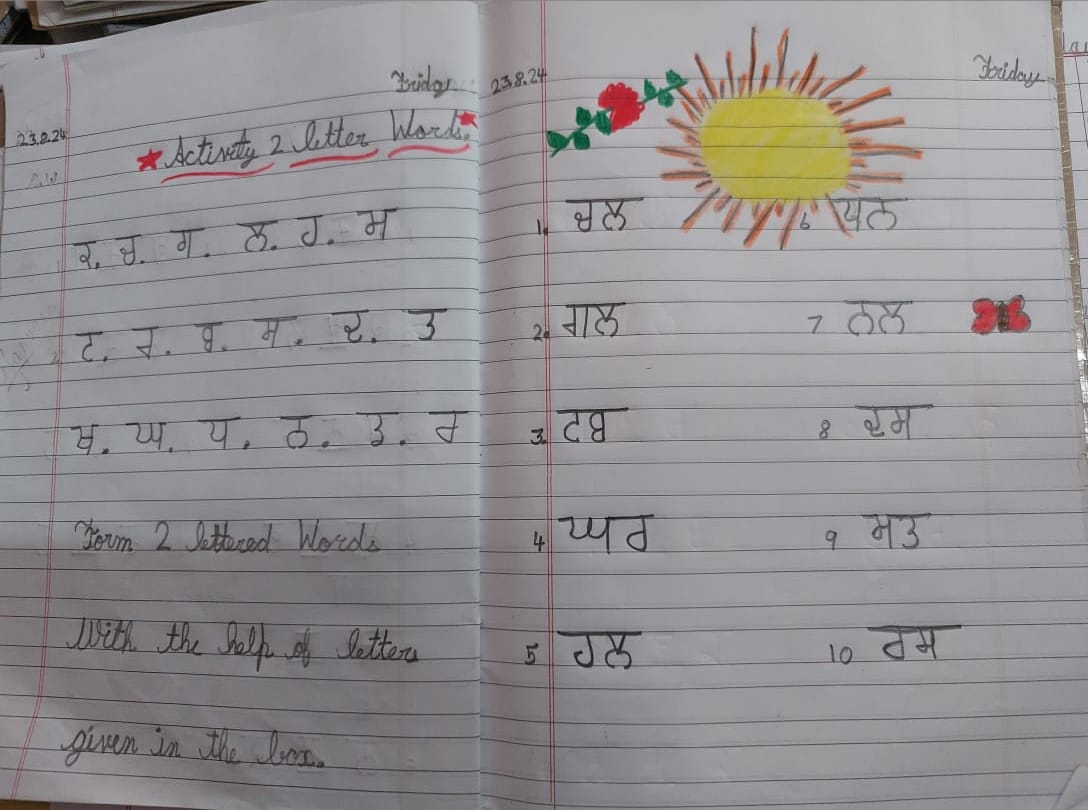 Friday
23.8.24
Activity 2 letter Words.
ਦ. ਚ. ਗ. ਲ. ਹ. ਮ
ਟ. ਜ. ਬ. ਸ. ਦ. ਤ
ਖ. ਘ. ਧ. ਨ. ੳ. ਰ
Form 2 lettered Words
With the help of letters
given in the box.
23.8.24 Friday
1. ਚਲ
2. ਗਲ
3. ਟਬ
4 ਘਰ
5 ਹਲ
6 ਧਨ
7 ਨਲ
8 ਦਮ
9 ਸਤ
10 ਰਸ